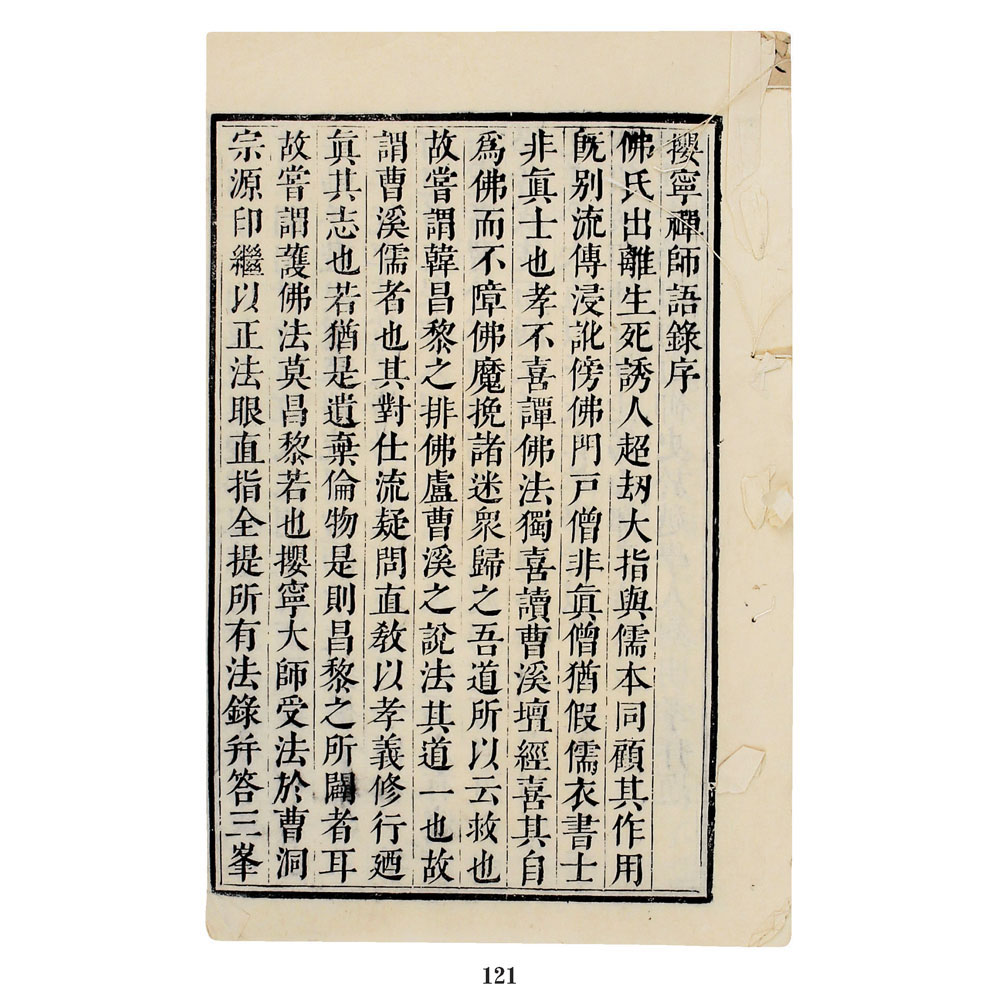 攖寧禪師語錄序
佛氏出離生死誘人超刧大指與儒本同顧其作用
旣別流傳浸訛傍佛門戸僧非眞僧猶假儒衣書士
非眞士也孝不喜譚佛法獨喜讀曹溪壇經喜其自
爲佛而不障佛魔挽諸迷衆歸之吾道所以云救也
故嘗謂韓昌黎之排佛盧曹溪之說法其道一也故
謂曹溪儒者也其對仕流疑問直敎以孝義修行廼
眞其志也若猶是遺棄倫物是則昌黎之所闢者耳
故嘗謂護佛法莫昌黎若也攖寧大師受法於曹洞
宗源印繼以正法眼直指全提所有法錄幷答三峯
121